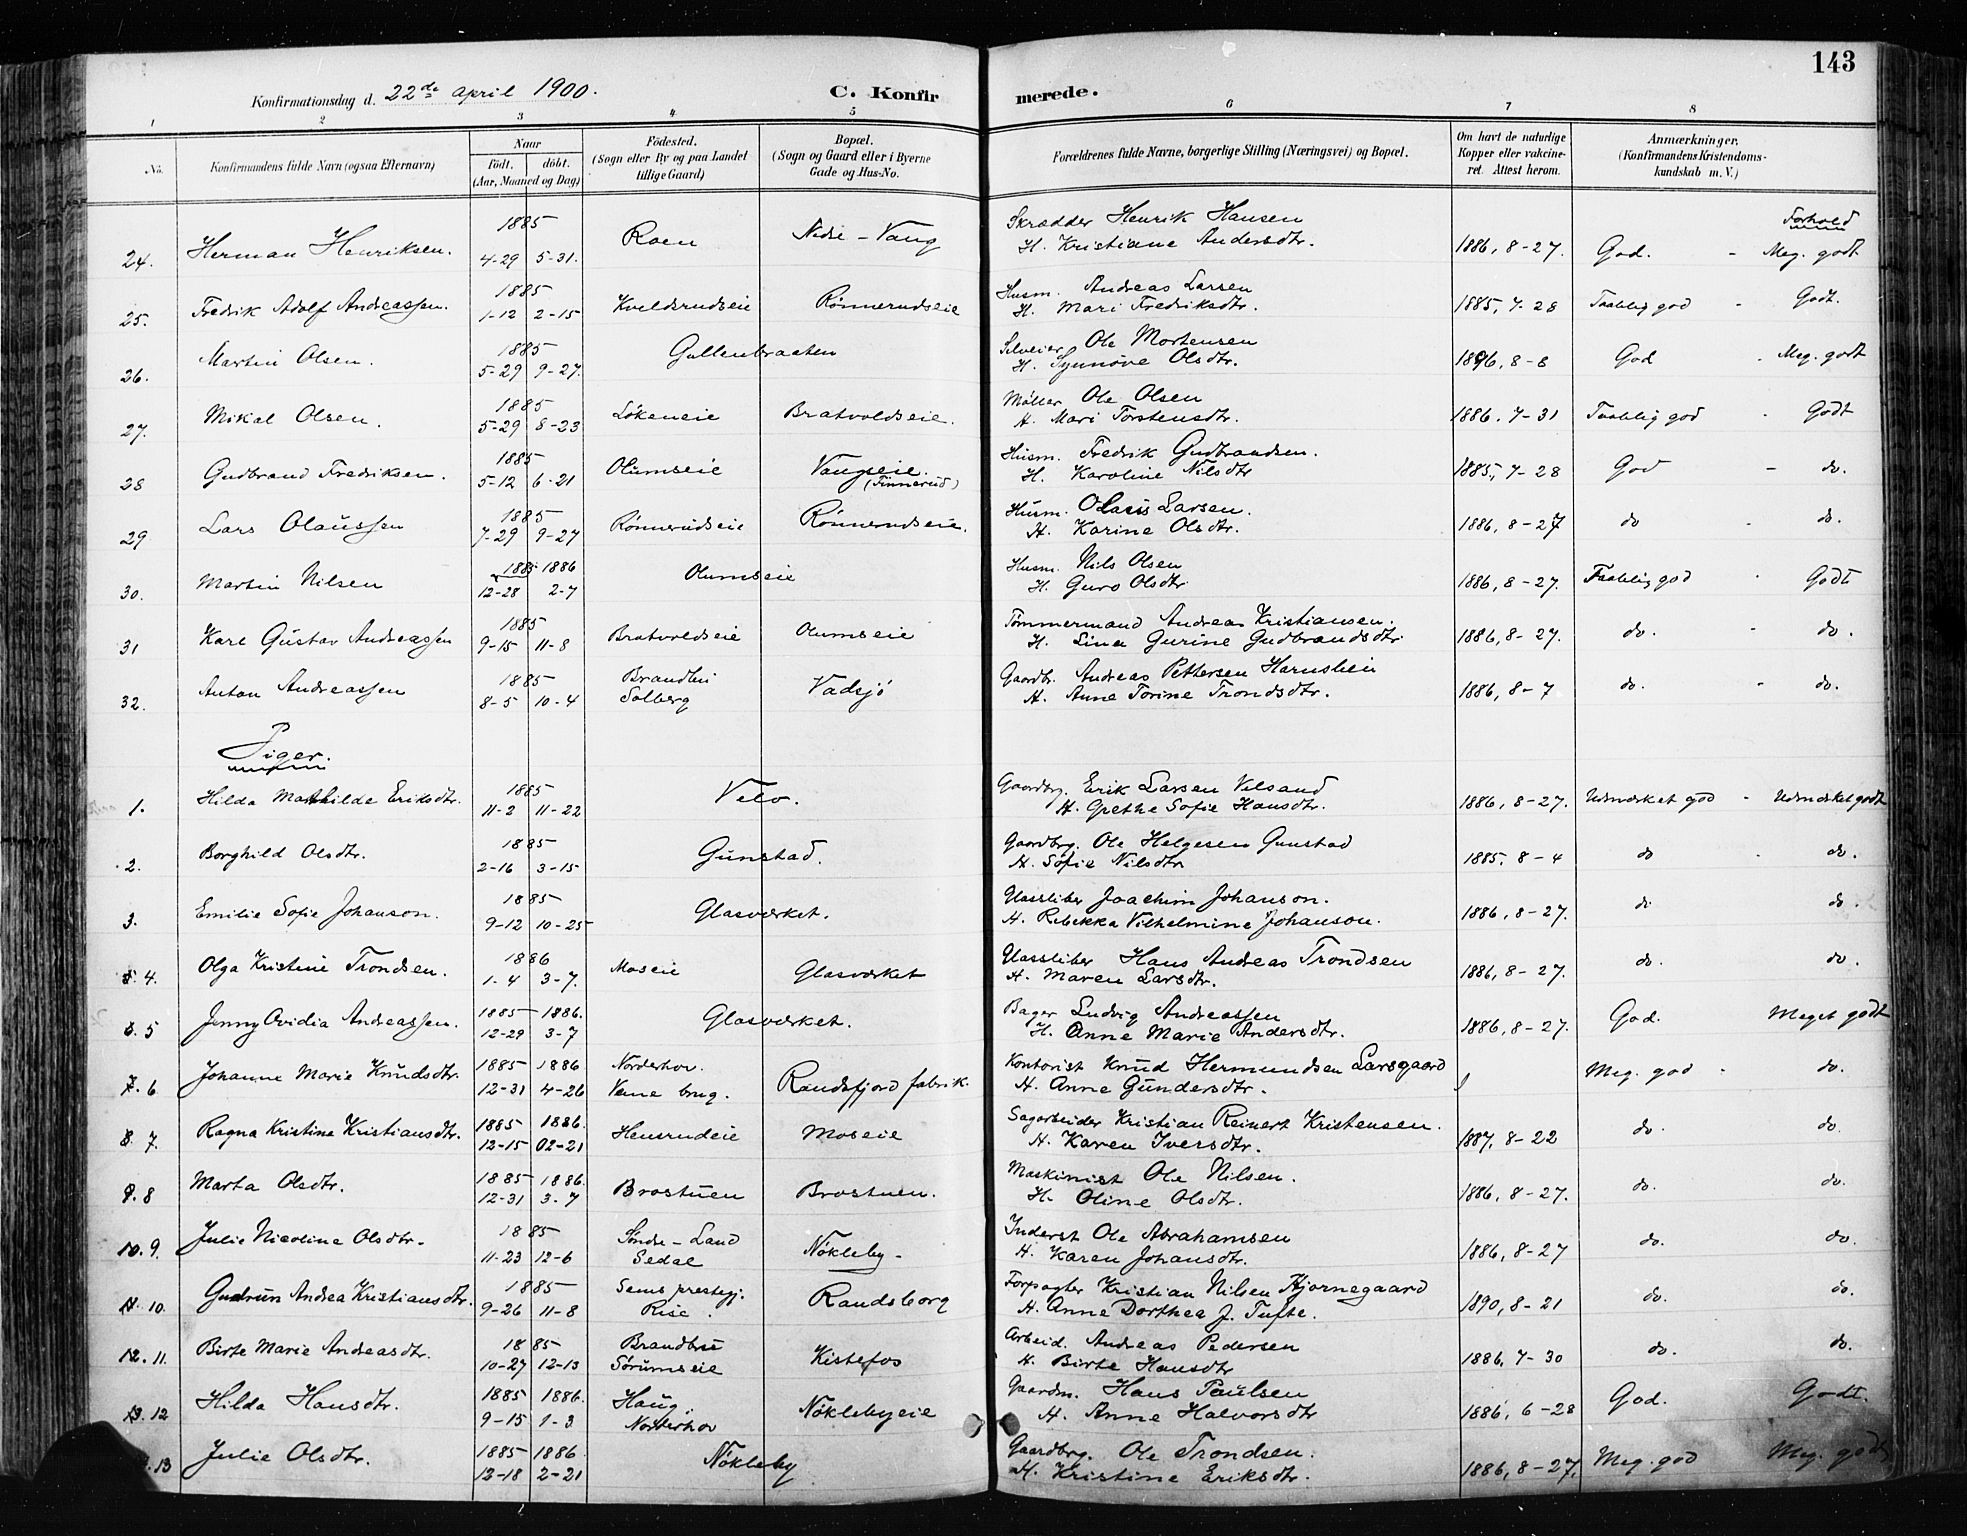 143
Konfirmationsdag d. 22de April 1900.
C. Konfirmerede.
1 2 3 4 5 6 7 8
No. Konfirmandens fulde Navn (ogsaa Efternavn) Naar födt. döbt. (Aar, Maaned og Dag) Födested. (Sogn eller By og paa Landet tillige Gaard) Bopæl. (Sogn og Gaard eller i Byerne Gade og Hus-No. Forældrenes fulde Navne, borgerlige Stilling (Næringsvei) og Bopæl. Om havt de naturlige Kopper eller vakcineret. Attest herom. Anmærkninger. (Konfirmandens Kristendomskundskab m. V.)
Forhold
24. Herman Henriksen. 1885 4-29 5-31. Roen Nedre-Vang Skrædder Henrik Hansen H. Kristiane Andersdtr. 1886, 8-27. God. - Meg. godt
25. Fredrik Adolf Andreassen. 1885 1-12 2-15 Kveldsrudseie Rönnerudseie Husm. Andreas Larsen H. Mari Fredriksdtr. 1885, 7-28 Taalelig god - Godt.
26. Martin Olsen. 1885 5-29 9-27. Gullenbraaten Selveier Ole Mortensen H. Synnöve Olsdtr. 1896, 8-8 God - Meg. godt
27. Mikal Olsen. 1885 5-29 8-23 Lökeneie Bratvoldseie. Möller Ole Olsen H. Mari Torstensdtr. 1886. 7-31 Taalelig god - Godt
28 Gudbrand Fredriksen. 1885 5-12 6-21 Olumseie Vangseie. (Finnerud) Husm. Fredrik Gudbrandsen. H. Karoline Nilsdtr 1885, 7-28 God - do.
29 Lars Olaussen 1885 7-29 9-27 Rönnerudseie Rönnerudseie. Husm. Olaus Larsen. H. Karine Olsdtr. 1886, 8-27 do - do.
30. Martin Nilsen 1885 1886 12-28 2-7 Olumseie Husm. Nils Olsen H. Guro Olsdtr 1886, 8-27. Taalelig god - Godt
31 Karl Gustav Andreassen 1885 9-15 11-8 Bratvoldseie Olumseie Tömmermand Andreas Kristiansen. H. Lina Gurine Gudbrandsdtr. 1886, 8-27. do. - do.
32. Anton Andreassen 1885 8-5 10-4 Brandbu Solberg Vadsjö Gaardbr. Andreas Pettersen H. Anne Torine Trondsdtr. 1886, 8-7 do. - do.
Piger.
1. Hilda Mathilde Eriksdtr. 1885 11-2 11-22 Velo. Gaardbrg. Erik Larsen Velsand H. Grethe Sofie Hansdtr. 1886, 8-27. Udmærket god - Udmærket godt
2. Borghild Olsdtr. 1885 2-16 3-15 Gunstad. Gaardbrg. Ole Helgesen Gunstad H. Sofie Nilsdtr 1885. 8-4 do - do.
3. Emilie Sofie Johanson. 1885 9-12 10-25 Glasværket. Glassliber Joachim Johanson. H. Rebekka Vilhelmine Johanson. 1886, 8-27. do do.
4. Olga Kristine Trondsen. 1886 1-4 3-7. Moseie Glasværket Glassliber Hans Andreas Trondsen H. Maren Larsdtr. 1886, 8-27. do. do.
5 Jenny Ovidia Andreassen. 1885 1886. 12-29 3-7 Glasværket. Bager Ludvig Andreassen H. Anne Marie Andersdtr. 1886, 8-27. God. Meget godt
6 Johanne Marie Knudsdtr. 1885 1886 12-31 4-26 Norderhov. Veme brug. Randsfjord fabrik. Kontorist Knud Hermundsen Larsgaard H. Anne Gundersdtr. Meg. god - do.
7. Ragna Kristine Kristiansdtr. 1885 1886. 12-15 02-21 Hensrudeie Moseie Sagarbeider Kristian Reinert Kristensen. H. Karen Iversdtr. 1887, 8-22 do. do.
8 Marta Olsdtr. 1885 1886. 12-31 3-7 Brostuen Brostuen. Maskinist Ole Nilsen. H. Oline Olsdtr. 1886, 8-27. do. do.
9. Julie Nicoline Olsdtr. 1885 11-23 12-6 Söndre-Land Sedal Nökleby. Inderst Ole Abrahamsen H. Karen Johansdtr. 1886, 8-27 do. do.
10. Gudrun Andrea Kristiansdtr. 1885 9-26 11-8 Sems prestegj. Rise. Randsborg Forpagter Kristian Nilsen H. Anne Dorthea J. Tufte. 1890, 8-21 do. do.
11. Birte Marie Andreasdtr. 1885 10-27 12-13 Brandbu Sörumseie Kistefos Arbeid. Andreas Pedersen H. Birte Hansdtr 1886, 7-30 do. do.
12 Hilda Hansdtr. 1885 1886. 9-15 1-3 Haug. Norderhov Nöklebyeie Gaardm. Hans Paulsen H. Anne Halvorsdtr 1886, 6-28 God. Godt.
13 Julie Olsdtr. 1885 1886 12-18 2-21 Nökleby Gaardbrg. Ole Trondsen. H. Kristine Eriksdtr. 1886, 8-27. Meg. god Meg. godt